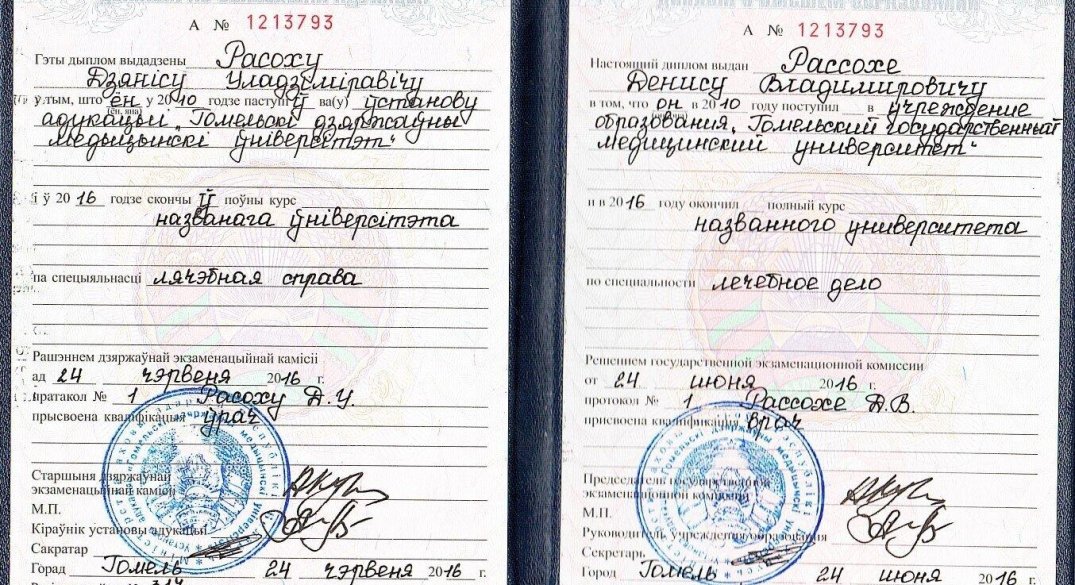 А № 1213793
Гэты дыплом выдадзены Расоху
Дзянісу Уладзіміравічу
у тым, што ён у 2010 годзе паступіў ва(у) установу
адукацыі „Гомельскі дзяржаўны
медыцынскі ўніверсітэт“
і ў 2016 годзе скончыў поўны курс
названага ўніверсітэта
па спецыяльнасці лячэбная справа
Рашэннем дзяржаўнай экзаменацыйнай камісіі
ад 24 чэрвеня 2016 г.
пратакол № 1 Расоху Д.У.
прысвоена кваліфікацыя ўрач
Старшыня дзяржаўнай
экзаменацыйнай камісіі
М.П.
Кіраўнік установы адукацыі
Сакратар
Горад Гомель 24 чэрвеня 2016 г.
А № 1213793
Настоящий диплом выдан Рассохе
Денису Владимировичу
в том, что он в 2010 году поступил в учреждение
образования „Гомельский государственный
медицинский университет“
и в 2016 году окончил полный курс
названного университета
по специальности лечебное дело
Решением государственной экзаменационной комиссии
от 24 июня 2016 г.
протокол № 1 Рассохе Д.В.
присвоена квалификация врач
Председатель государственной
экзаменационной комиссии
М.П.
Руководитель учреждения образования
Секретарь
Город Гомель 24 июня 2016 г.